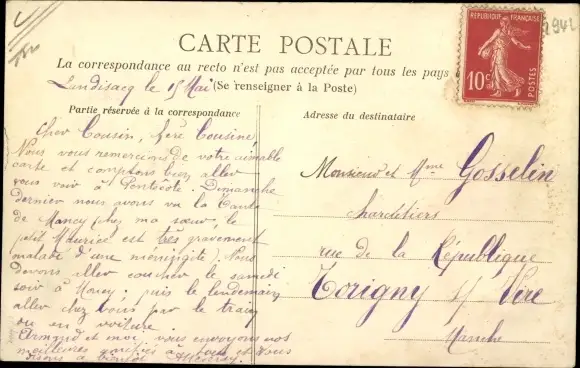 CARTE POSTALE
La correspondance au recto n'est pas acceptée par tous les pays
Landisacq le 15 Mai (Se renseigner à la Poste)
Partie réservée à la correspondance
Adresse du destinataire
REPUBLIQUE FRANÇAISE
10c
POSTES
Cher Cousin, chère Cousine,
Nous vous remercions de votre aimable
carte et comptons bien aller
vous voir à Pentecôte. Dimanche
dernier nous avons vu la Tante
de Mancy chez ma sœur, le
petit Maurice est très gravement
malade d'une meningite). Nous
devons aller coucher le samedi
soir à puis le lendemain
aller chez vous par le train
ou en voiture.
Armand et moi vous envoyons nos
meilleures amitiés à tous et Nous
disons à bientôt
Monsieur et Mme Gosselin
rue de la République
Torigny s/ Vire
Manche